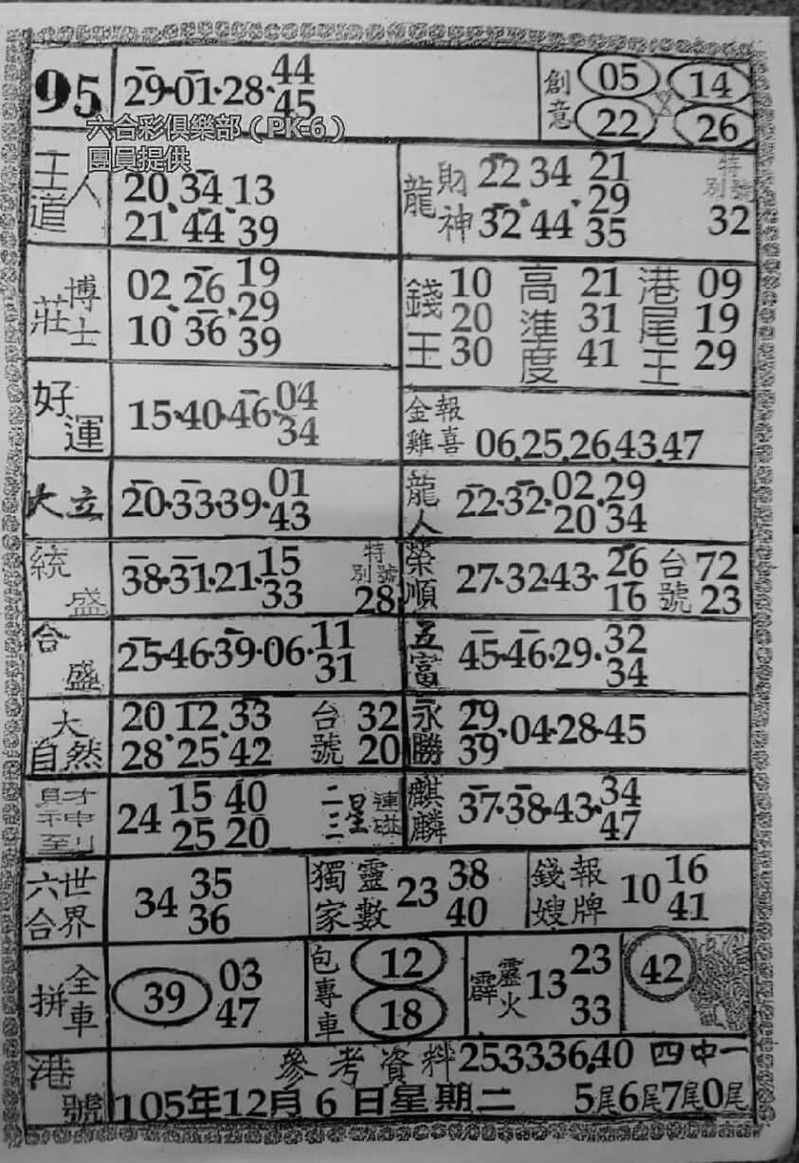 95 29·01·28·44 45 創意 05 14 22 26
六合彩俱樂部（PK-6）
團員提供
王道人 20 34 13
21 44 39
龍財神 22 34 21 29 特別號
32 44 35 32
莊博士 02 26 19 29
10 36 39
錢王 10 20 30 高準度 21 31 41 港尾王 09 19 29
好運 15·40·46·04 34
金雞報喜 06.25.26.43.47
大立 20·33·39·01 43
龍人 22·32·02·29
20 34
統盛 38·31·21·15 33 特別號 28
榮順 27·32·43·26 16 台號 72 23
合盛 25·46·39·06·11 31
五富 45·46·29·32 34
大自然 20 12 33 台號 32
28 25 42 20
永勝 29 39·04·28·45
財神到 24 15 40 二三星連碰
25 20
麒麟 37·38·43·34 47
六合世界 34 35 36
獨家靈數 23 38 40
錢嫂報牌 10 16 41
全車拼 39 03 47
包專車 12 18
霹靂火 13 23 33
42
港號 參考資料 25.33.36.40 四中一
105年12月6日星期二 5尾6尾7尾0尾